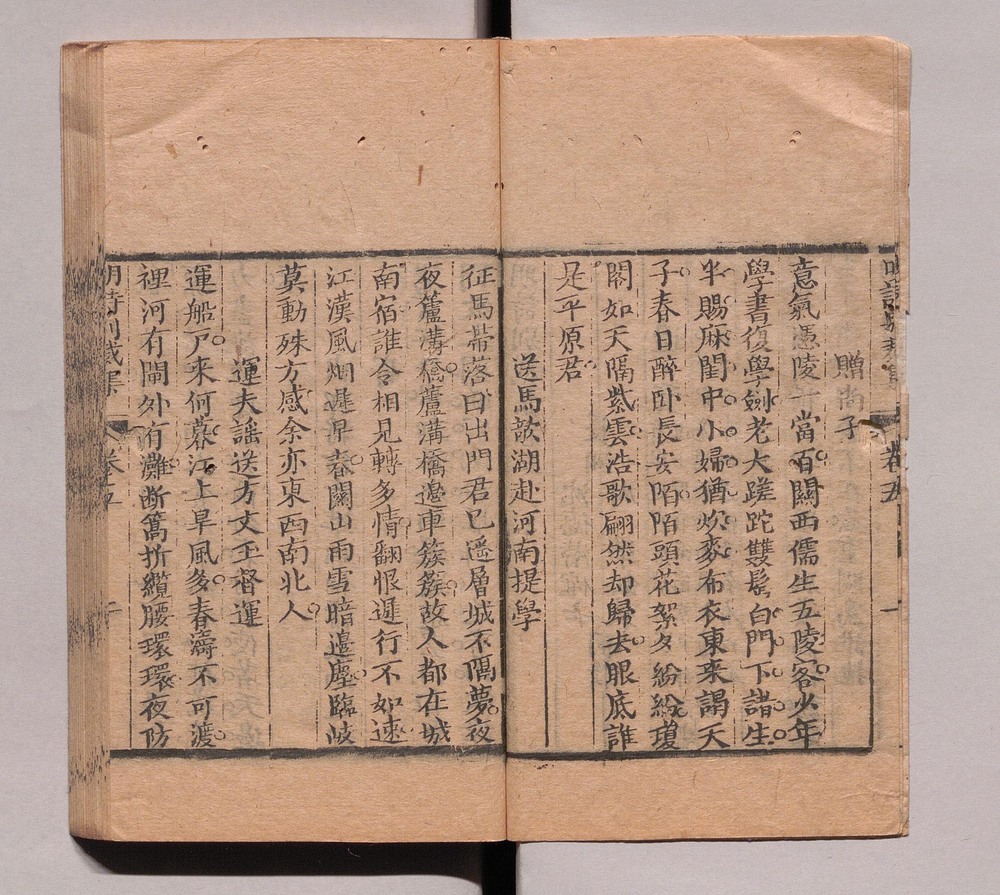 卷五
一
贈尚子
意氣憑陵一當百關西儒生五陵客少年
學書復學劍老大蹉跎雙鬂白門下諸生
半賜麻閨中小婦猶炊麥布衣東来謁天
子春日醉卧長安陌陌頭花絮夕紛紛瓊
閣如天隔紫雲浩歌翩然却歸去眼底誰
是平原君
送馬歊湖赴河南提學
征馬蕭落日出門君已遥層城不隔夢夜
夜籚溝橋蘆溝橋邊車簇簇故人都在城
南宿誰令相見轉多情翻恨遲行不如速
江漢風烟遲早春關山雨雪暗邊塵臨岐
莫動殊方感余亦東西南北人
運夫謡送方文玉督運
運船戸来何暮江上旱風多春濤不可渡
裡河有閘外有灘断篙折纜腰環環夜防
明詩別裁集 卷五